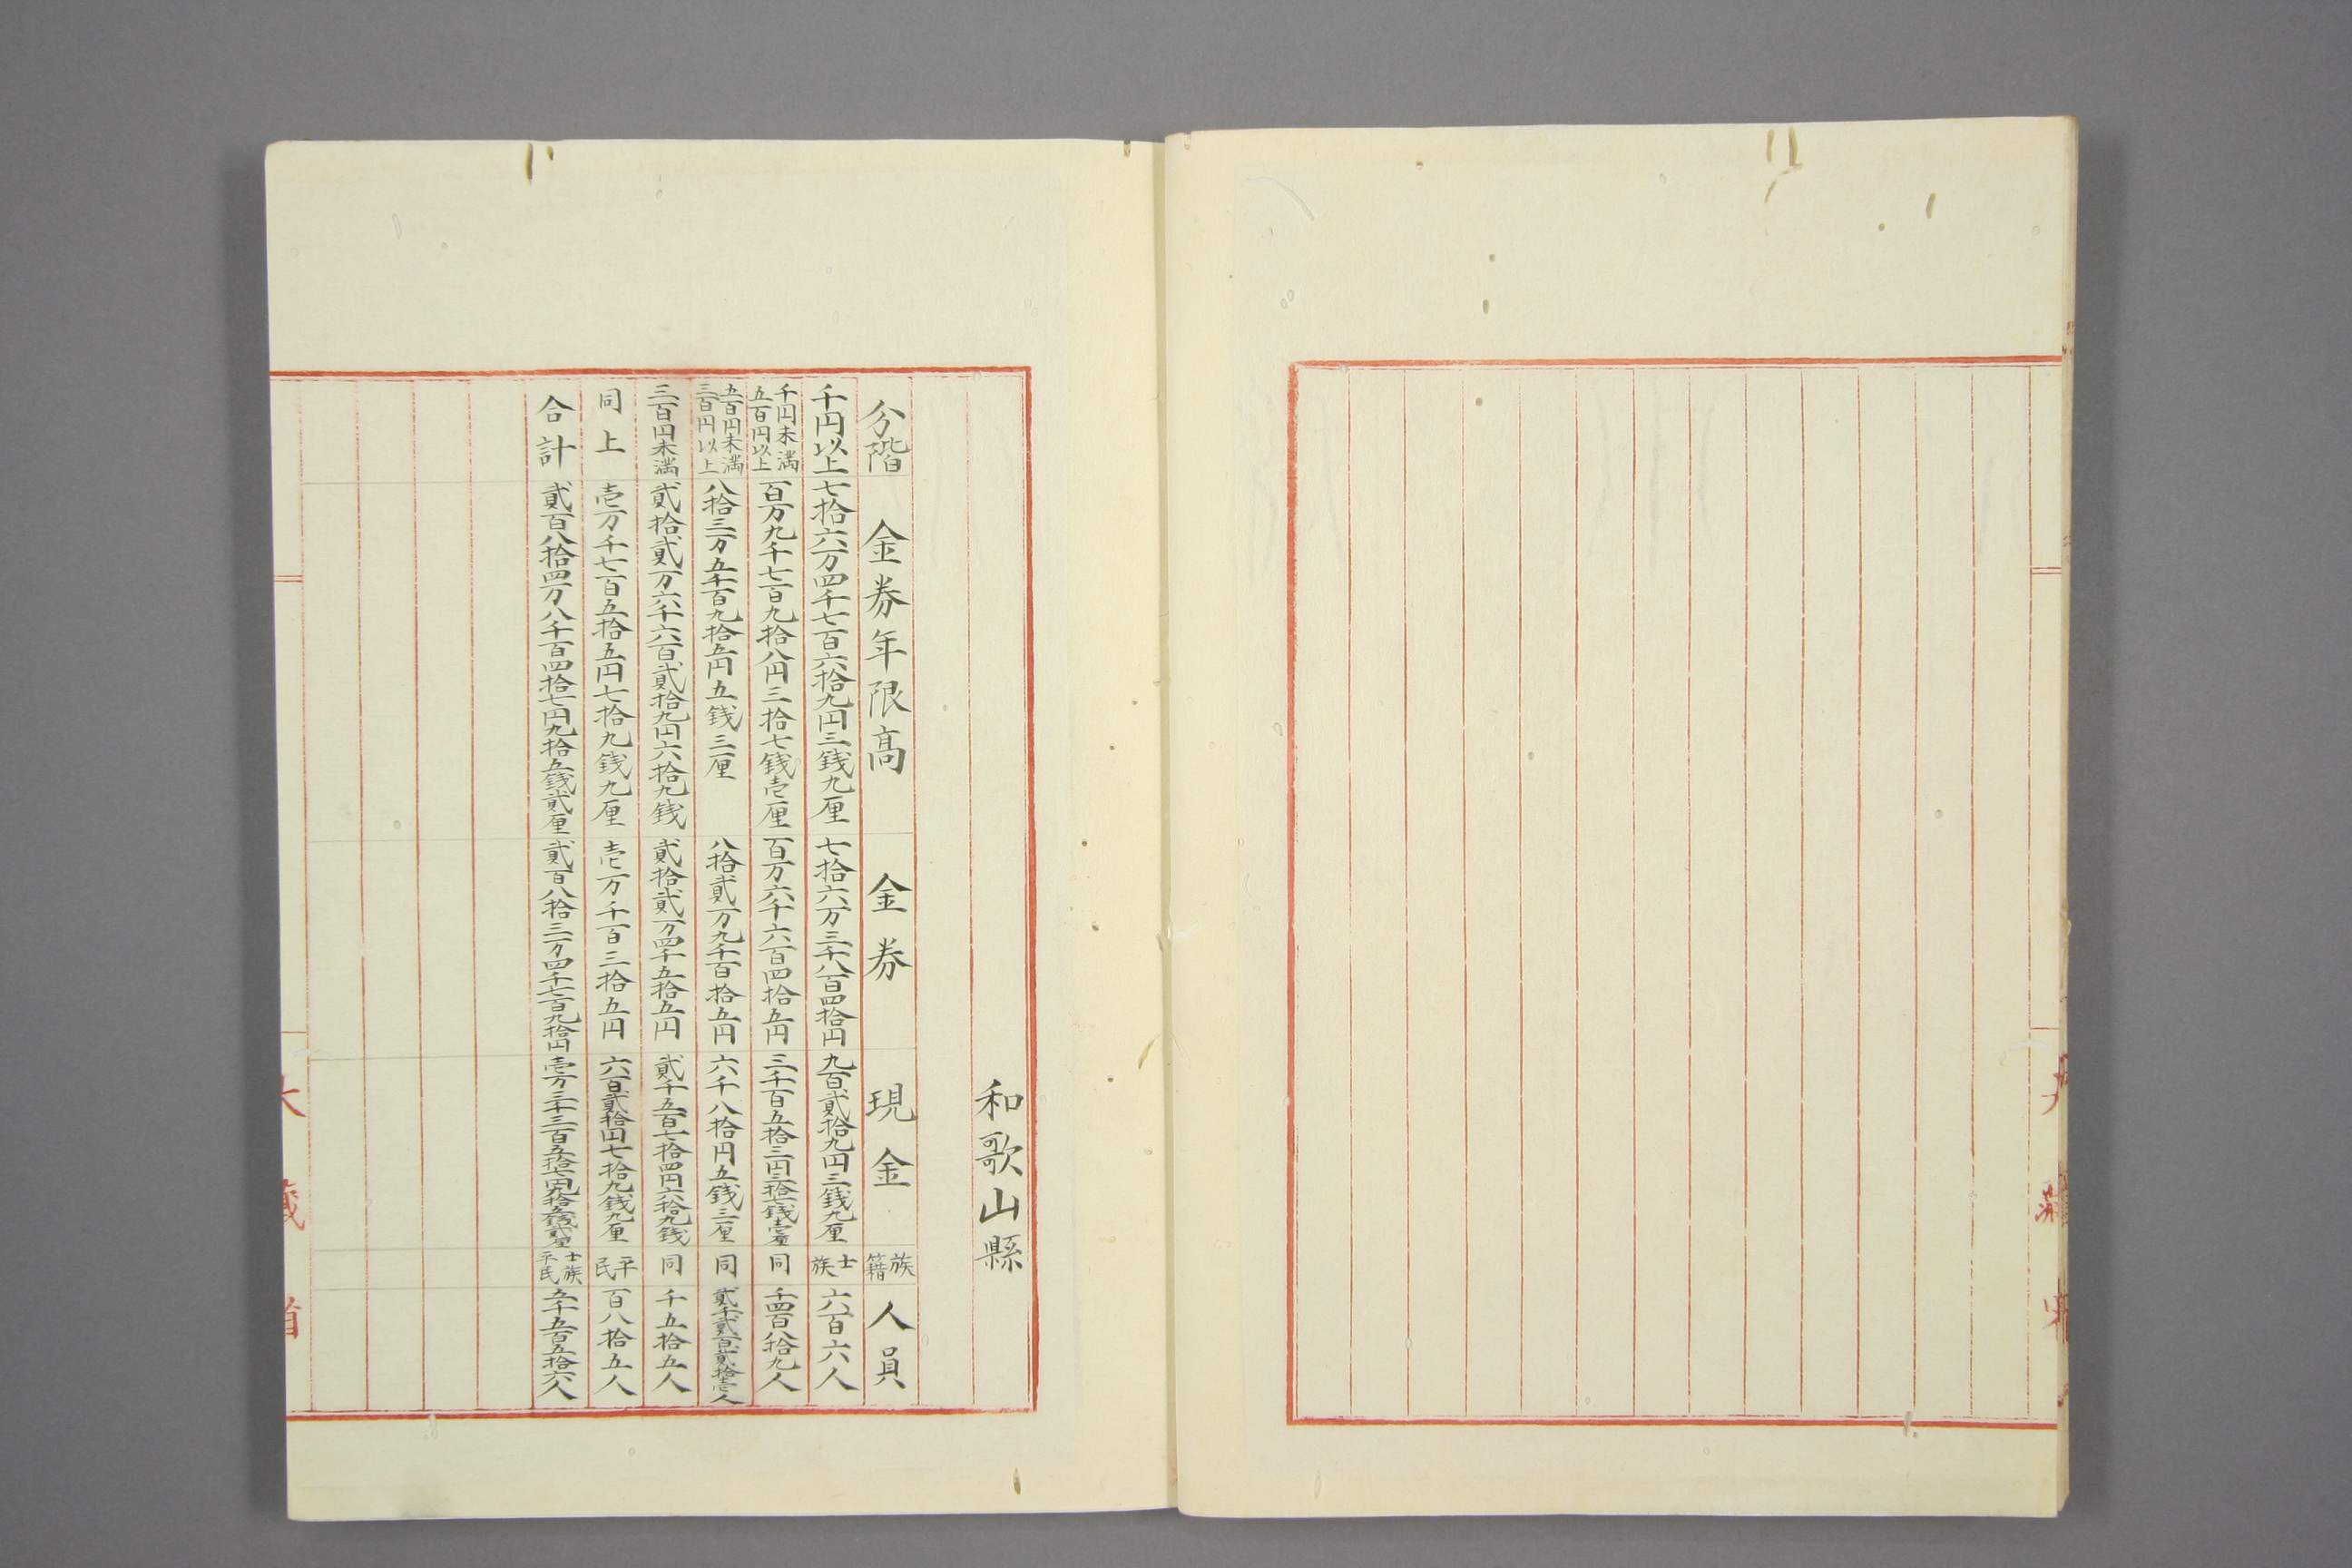 和歌山縣
分階 金券年限高 金券 現金 族籍 人員
千円以上 七拾六万四千七百六拾九円三銭九厘 七拾六万三千八百四拾円 九百貳拾九円三銭九厘 士族 六百六人
千円未満五百円以上 百万九千七百九拾八円三拾七銭壱厘 百万六千六百四拾五円 三千百五拾三円三拾七銭壱厘 同 千四百八拾九人
五百円未満三百円以上 八拾三万五千百九拾五円五銭三厘 八拾貳万九千百拾五円 六千八拾円五銭三厘 同 貳千貳百貳拾壱人
三百円未満 貳拾貳万六千六百貳拾九円六拾九銭 貳拾貳万四千五拾五円 貳千五百七拾四円六拾九銭 同 千五拾五人
同上 壱万千七百五拾五円七拾九銭九厘 壱万千百三拾五円 六百貳拾円七拾九銭九厘 平民 百八拾五人
合計 貳百八拾四万八千百四拾七円九拾五銭貳厘 貳百八拾三万四千七百九拾円 壱万三千三百五拾七円九拾五銭貳厘 士族平民 五千五百五拾六人